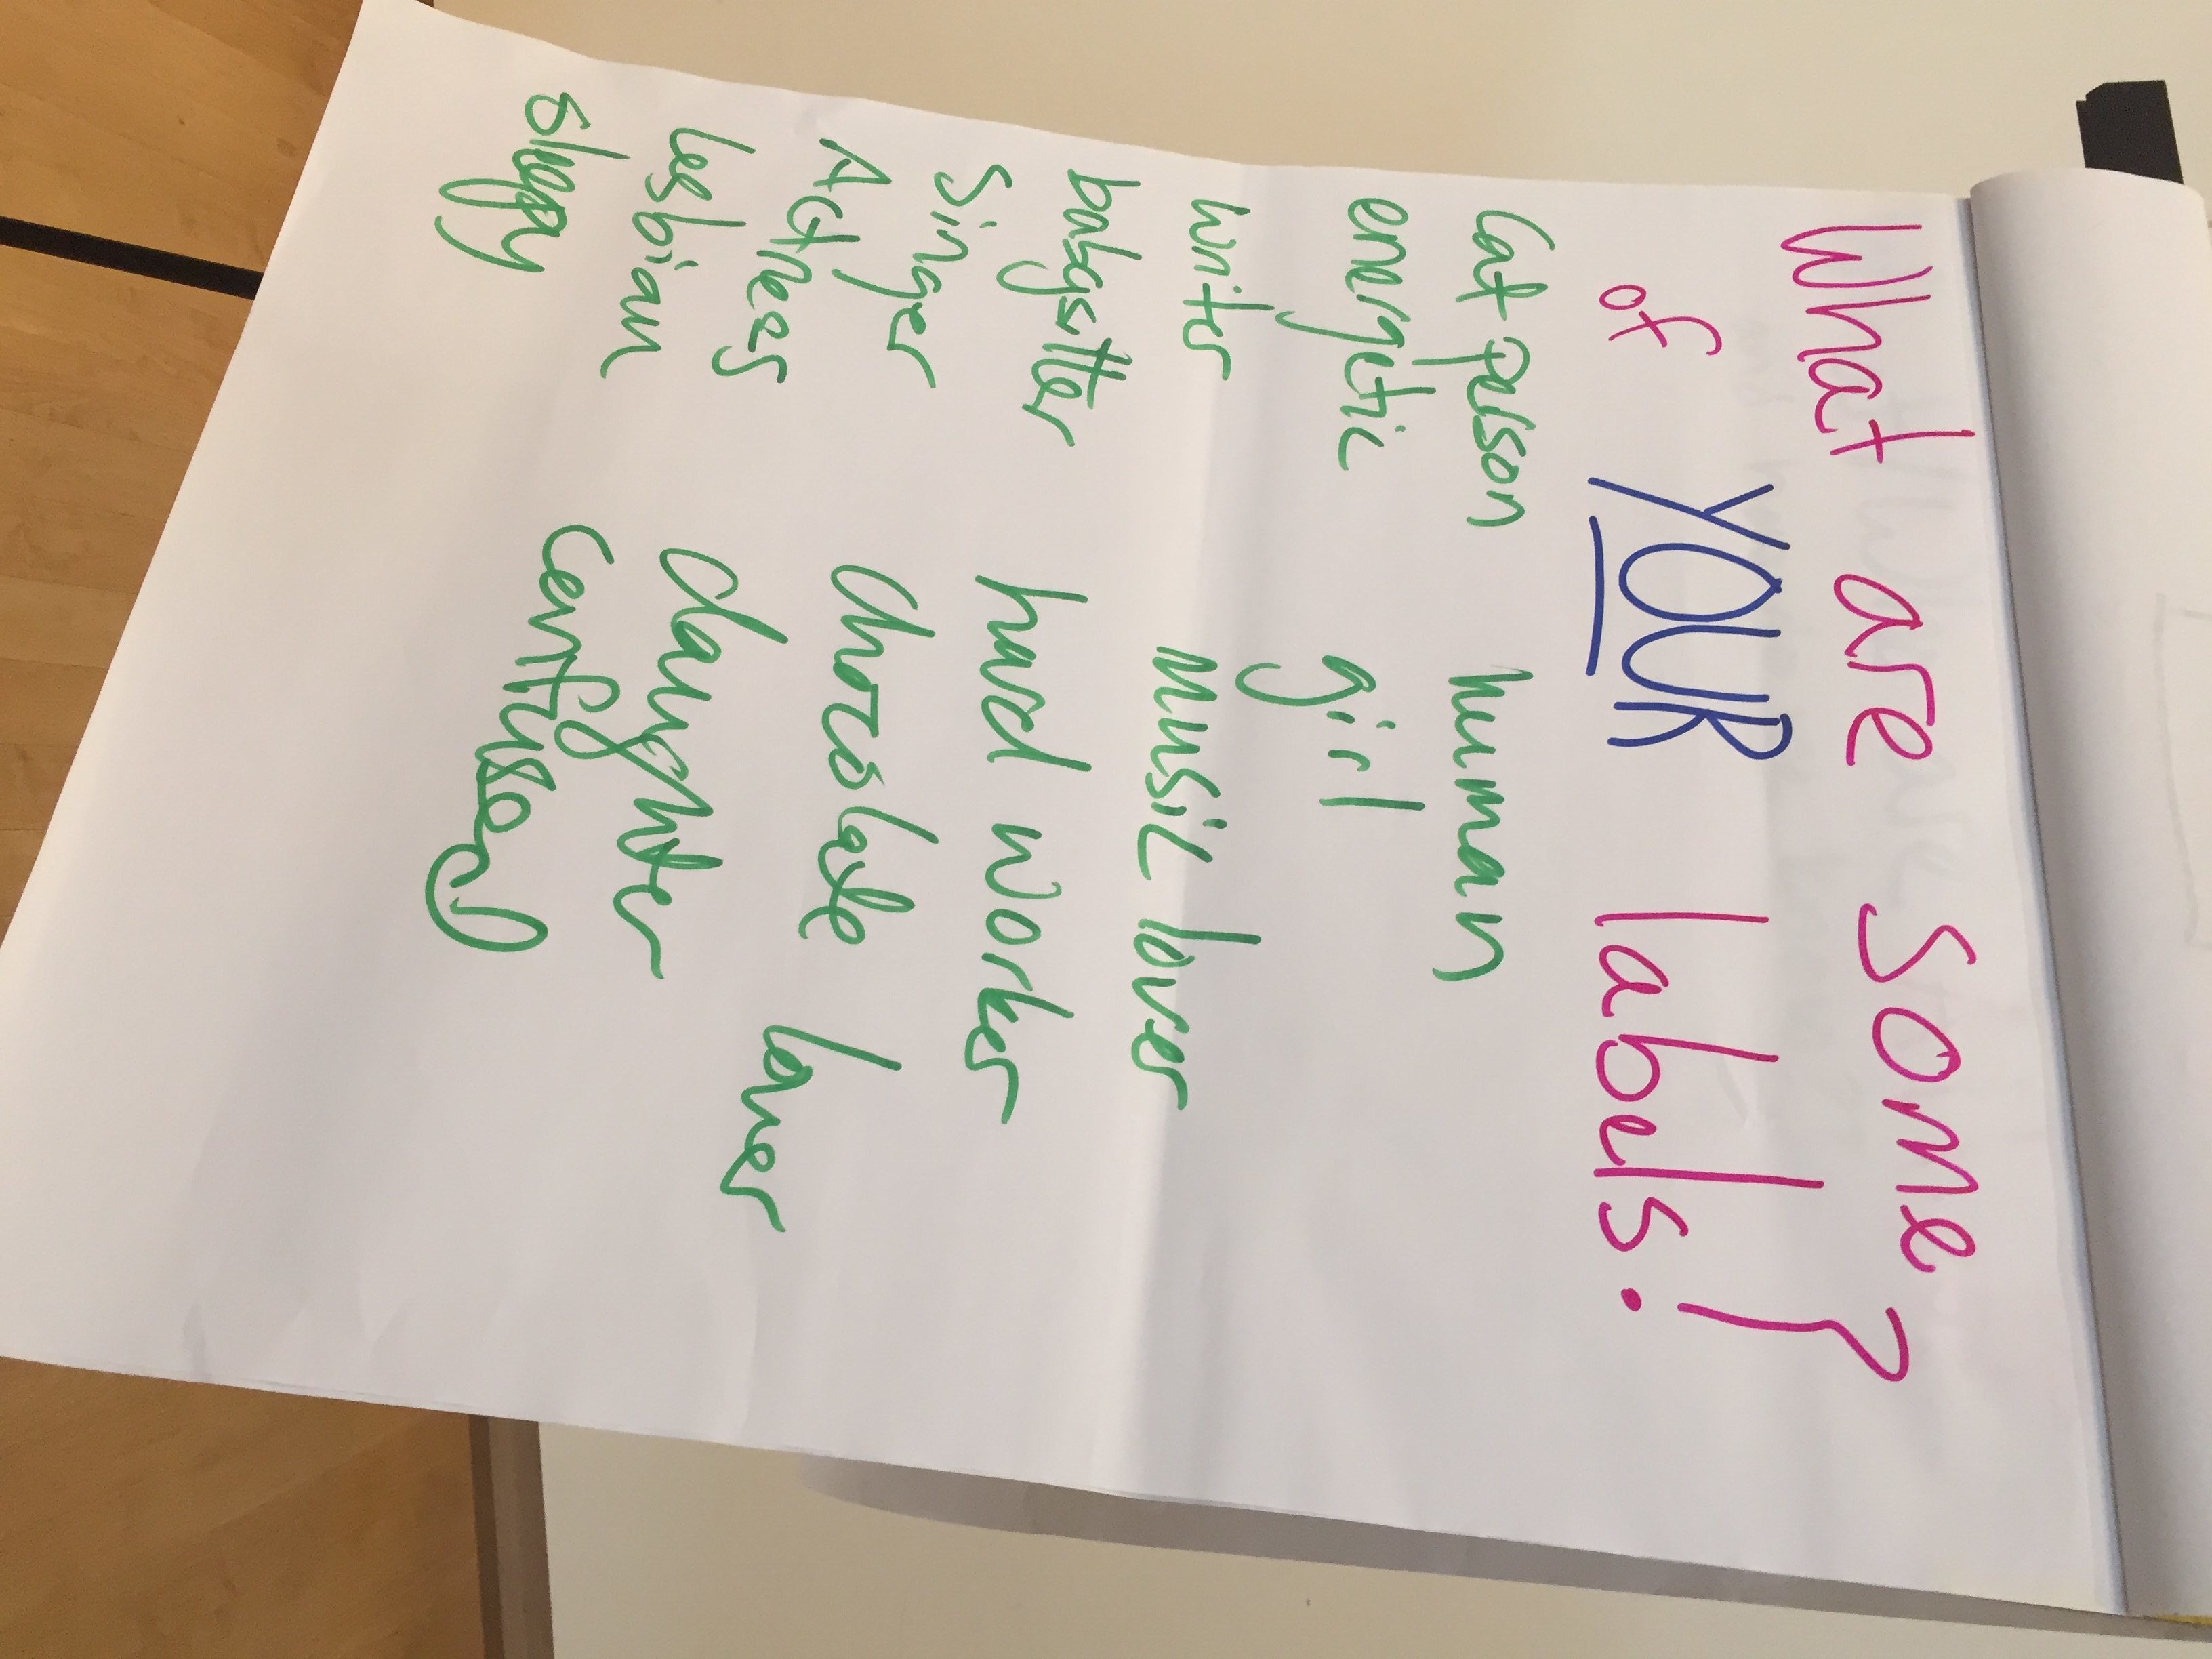 What are some
of YOUR labels?
Cat person
energetic
writer
babysitter
Singer
Actress
lesbian
sleepy
human
girl
music lover
hard worker
chocolate lover
daughter
confused